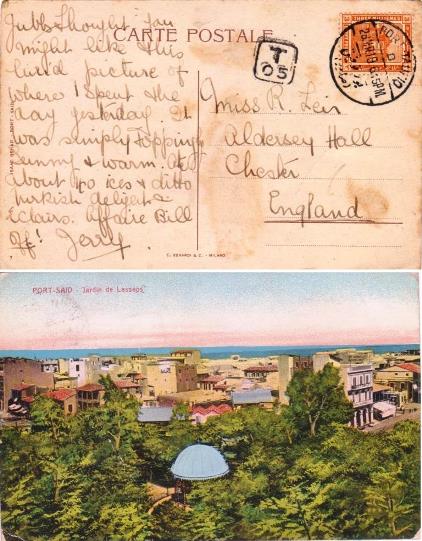 Jubbs I thought you
might like this
lurid picture of
where I spent the
day yesterday. It
was simply topping
sunny & warm. Ate
about 40 ices & ditto
turkish delight &
Eclairs. Affaire Bill
Off! Jerry.
CARTE POSTALE
T
05
THREE MILLIEMES
PORT
Miss R. Leir
Aldersey Hall
Chester
England
C. BERARDI & C. - MILANO
PORT-SAID - Jardin de Lesseps